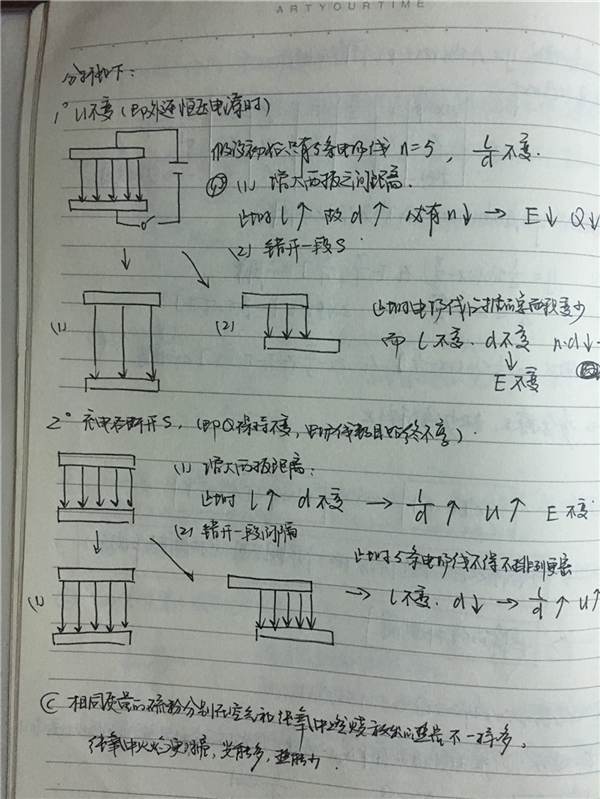 ARTYOURTIME
分析如下:
1° U不变 (即外连恒压电源时)
假设初始只有5条电场线 n=5, l/d 不变.
(1) 增大两板之间距离.
此时 l↑ 故 d↑ 必有 n↓ → E↓ Q↓
(2) 错开一段 S
(1)
(2)
此时电场线分布的宽面积变少
而 l不变. d不变 n·d↓
↓
E不变
2° 充电后断开S. (即Q保持不变, 电场线数目始终不变).
(1) 增大两板距离:
此时 l↑ d不变 → l/d↑ U↑ E不变
(2) 错开一段间隔
此时5条电场线不得不排列更密
(1)
→ l不变. d↓ → l/d↑ U↑
C 相同质量的硫粉分别在空气和纯氧中燃烧放出的热量不一样多,
纯氧中火焰更明亮, 光能多, 热能少.